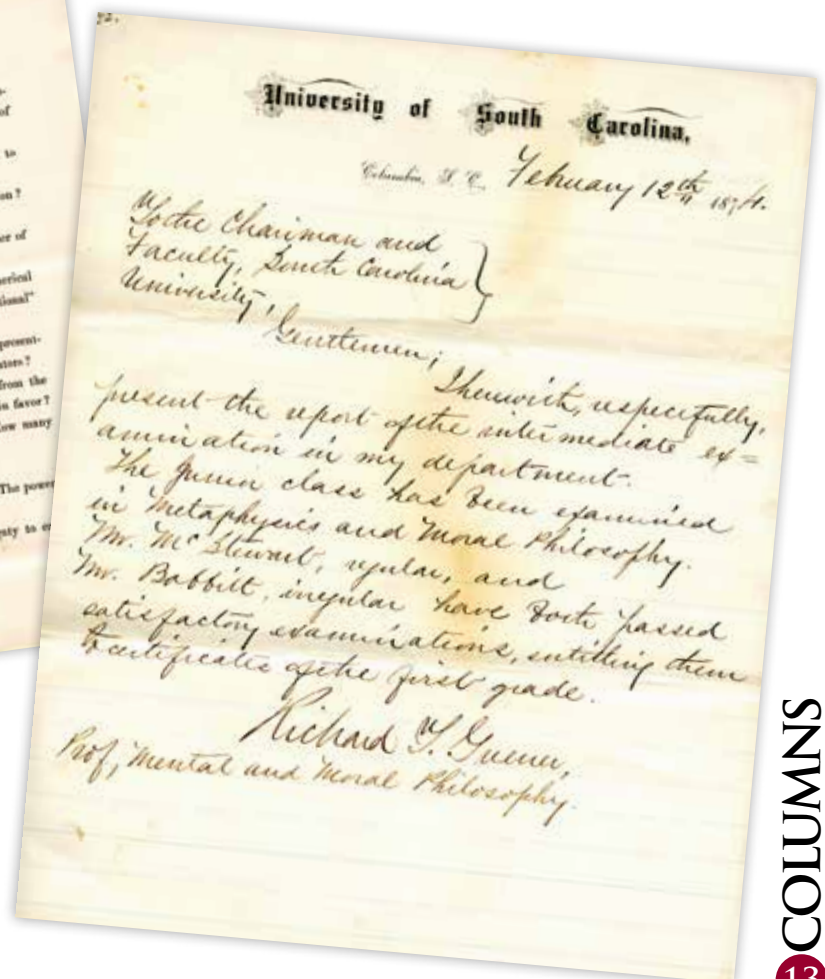 of
to
on?
er of
erical
tional"
present-
ators?
from the
in favor?
ow many
The power
University of South Carolina.
Columbia, S. C. February 12th 1874.
To the Chairman and
Faculty, South Carolina
University,
Gentlemen;
I herewith, respectfully,
present the report of the intermediate ex=
amination in my department.
The Junior class has been examined
in Metaphysics and Moral Philosophy.
Mr. McStewart, regular, and
Mr. Babbitt, irregular have both passed
satisfactory examinations, entitling them
to certificates of the first grade.
Richard T. Greener,
Prof, Mental and Moral Philosophy.
COLUMNS
13